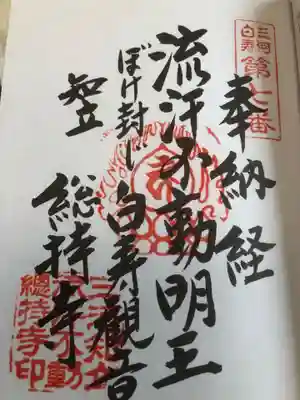 三河
白寿
第七番
奉納経
流汗不動明王
ぼけ封じ白寿觀音
知立
総持寺
三河知立
流汗不動
總持寺印